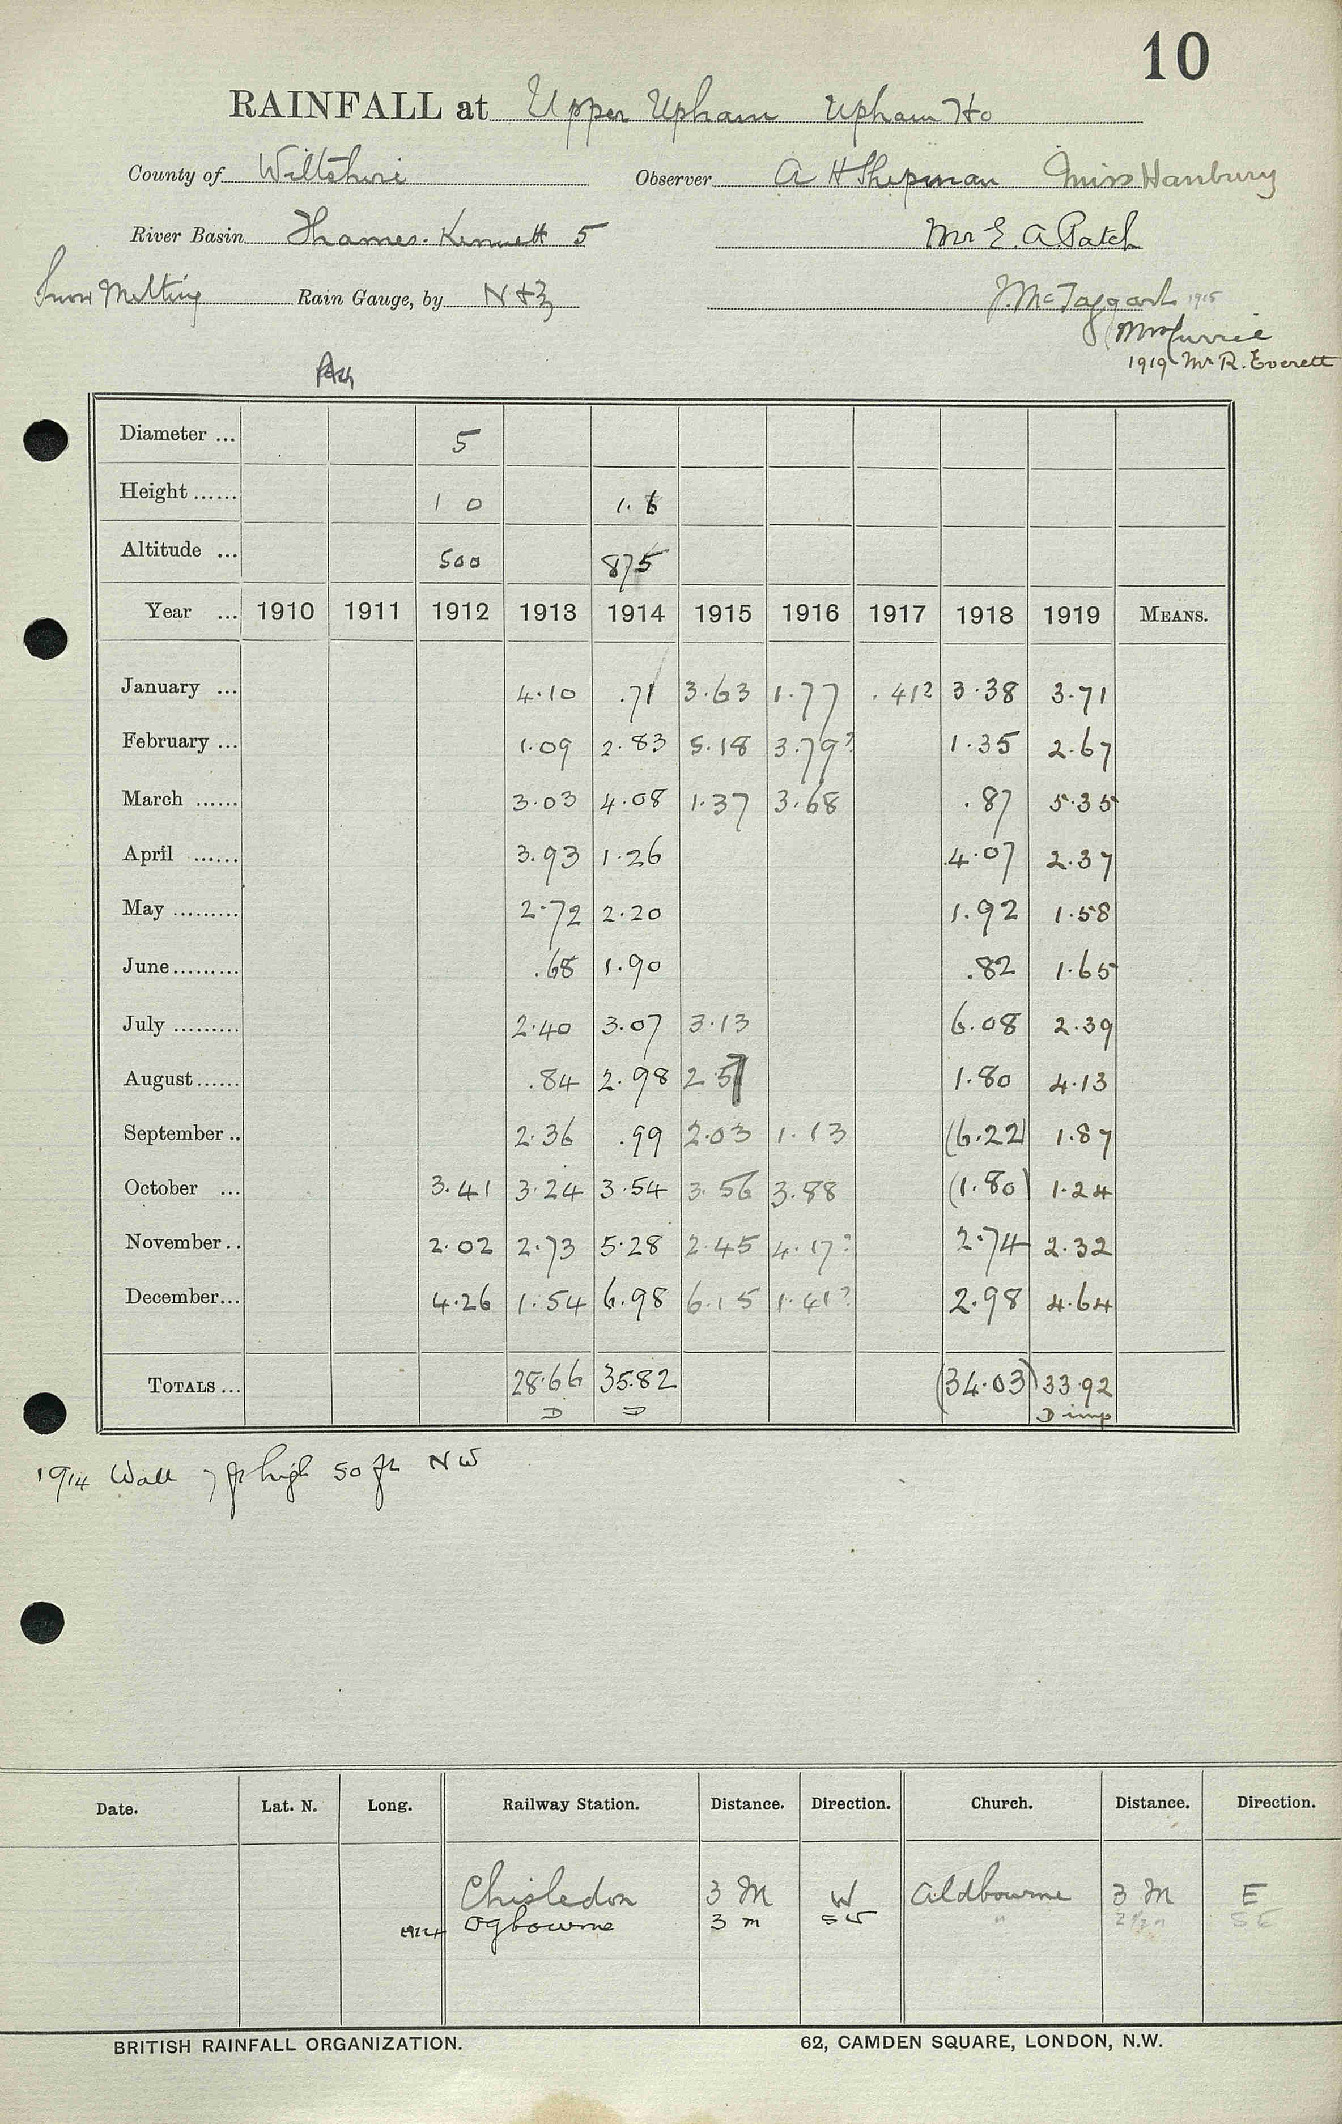 10
RAINFALL at Upper Upham Upham Ho
County of Wiltshire Observer A H Shepman Miss Hanbury
River Basin Thames. Kennett 5 Mr E. A. Patch
Snow Melting Rain Gauge, by N & Z J. McTaggart 1915
Mrs Currie
1919 Mr R. Everett
Diameter ... 5
Height ...... 1 0 1.6
Altitude ... 500 875
Year ... 1910 1911 1912 1913 1914 1915 1916 1917 1918 1919 MEANS.
January ... 4.10 .71 3.63 1.77 .41? 3.38 3.71
February ... 1.09 2.83 5.18 3.79? 1.35 2.67
March ...... 3.03 4.08 1.37 3.68 .87 5.35
April ...... 3.93 1.26 4.07 2.37
May ......... 2.72 2.20 1.92 1.58
June......... .68 1.90 .82 1.65
July ......... 2.40 3.07 3.13 6.08 2.39
August...... .84 2.98 2.57 1.80 4.13
September .. 2.36 .99 2.03 1.13 (6.22) 1.87
October ... 3.41 3.24 3.54 3.56 3.88 (1.80) 1.24
November.. 2.02 2.73 5.28 2.45 4.17? 2.74 2.32
December... 4.26 1.54 6.98 6.15 1.41? 2.98 4.64
TOTALS ... 28.66 35.82 (34.03) 33.92
D D D imp
1914 Wall 7 ft high 50 ft NW
Date. Lat. N. Long. Railway Station. Distance. Direction. Church. Distance. Direction.
Chisledon 3 M W Aldbourne 3 M E
1914 Ogbourne 3 m SW " 2½ m SE
BRITISH RAINFALL ORGANIZATION. 62, CAMDEN SQUARE, LONDON, N.W.